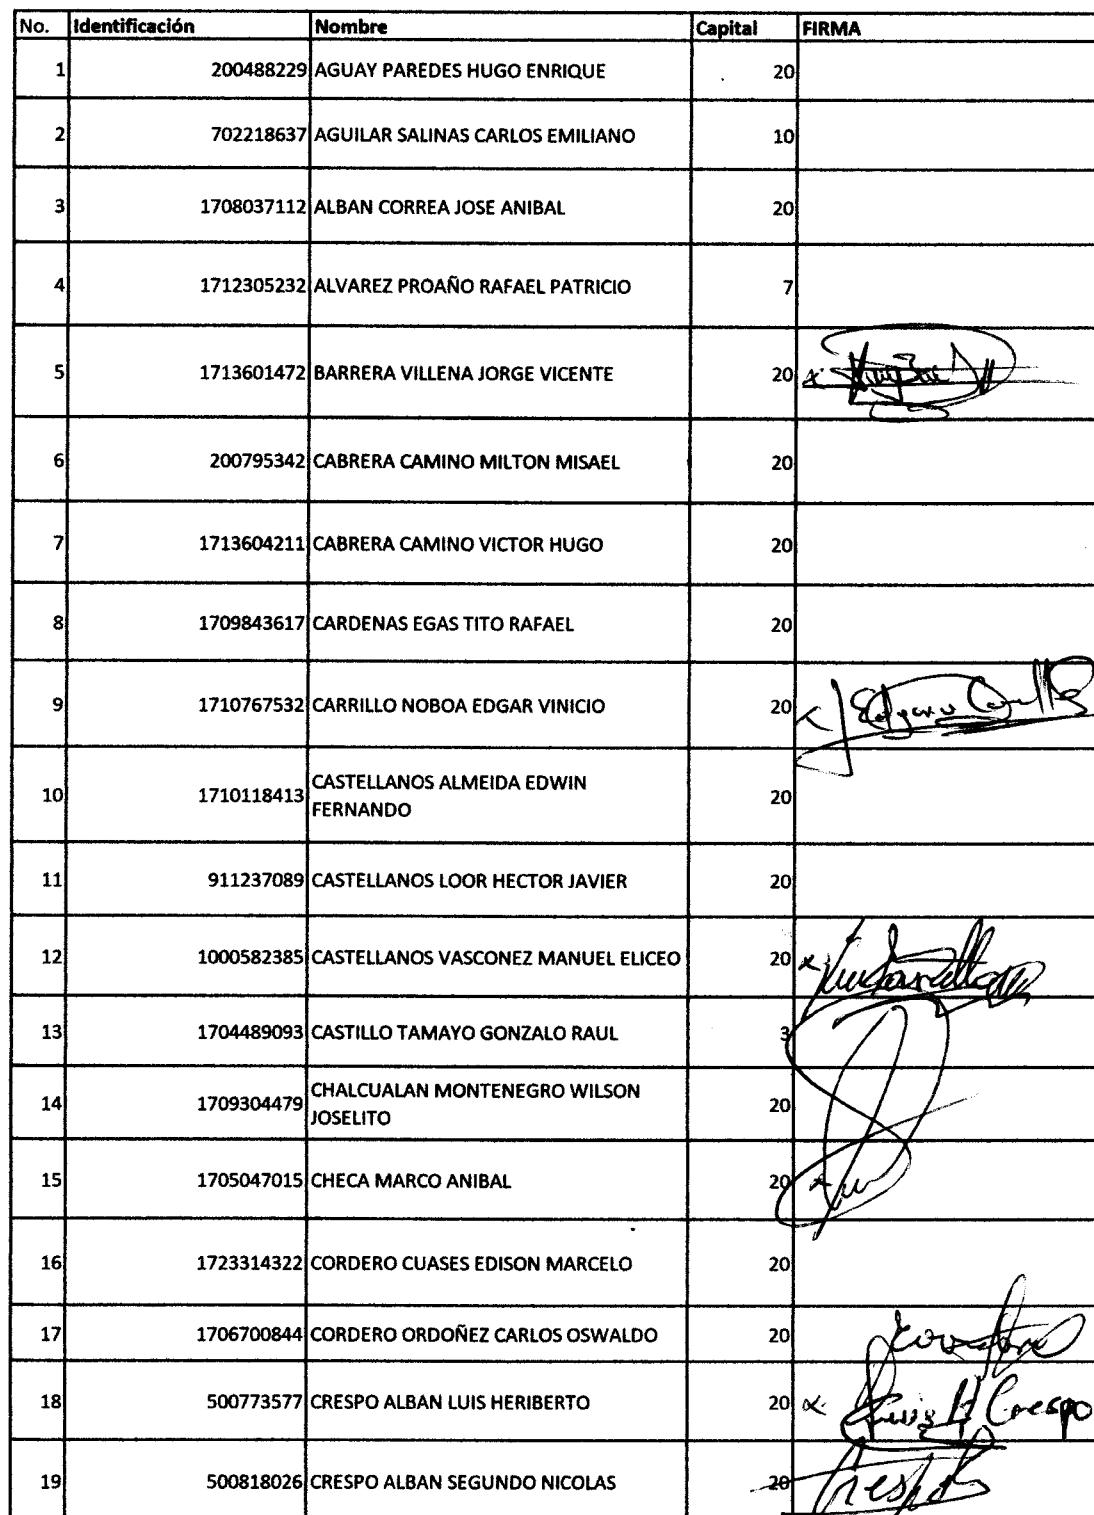 No. Identificación Nombre Capital FIRMA
1 200488229 AGUAY PAREDES HUGO ENRIQUE 20
2 702218637 AGUILAR SALINAS CARLOS EMILIANO 10
3 1708037112 ALBAN CORREA JOSE ANIBAL 20
4 1712305232 ALVAREZ PROAÑO RAFAEL PATRICIO 7
5 1713601472 BARRERA VILLENA JORGE VICENTE 20
6 200795342 CABRERA CAMINO MILTON MISAEL 20
7 1713604211 CABRERA CAMINO VICTOR HUGO 20
8 1709843617 CARDENAS EGAS TITO RAFAEL 20
9 1710767532 CARRILLO NOBOA EDGAR VINICIO 20
10 1710118413 CASTELLANOS ALMEIDA EDWIN
FERNANDO 20
11 911237089 CASTELLANOS LOOR HECTOR JAVIER 20
12 1000582385 CASTELLANOS VASCONEZ MANUEL ELICEO 20
13 1704489093 CASTILLO TAMAYO GONZALO RAUL 3
14 1709304479 CHALCUALAN MONTENEGRO WILSON
JOSELITO 20
15 1705047015 CHECA MARCO ANIBAL 20
16 1723314322 CORDERO CUASES EDISON MARCELO 20
17 1706700844 CORDERO ORDOÑEZ CARLOS OSWALDO 20
18 500773577 CRESPO ALBAN LUIS HERIBERTO 20 Luis H Crespo
19 500818026 CRESPO ALBAN SEGUNDO NICOLAS 20 Crespo